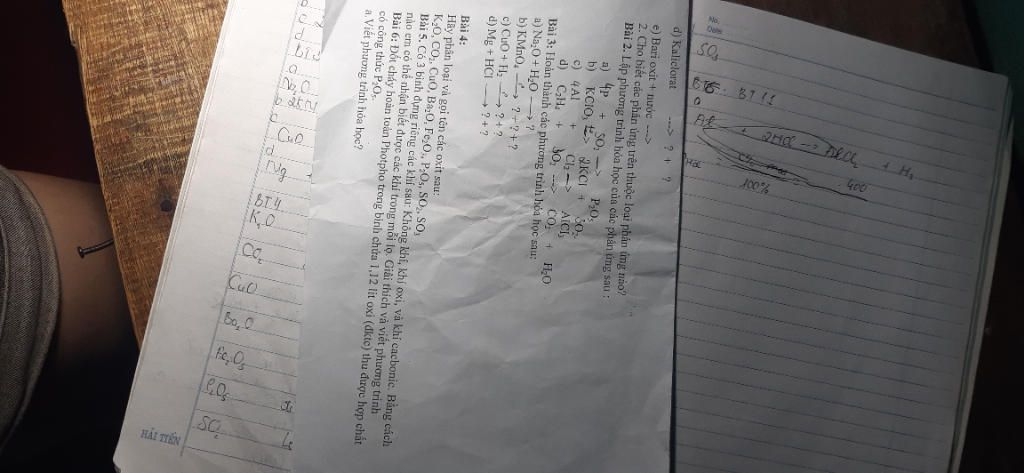 d) Kaliclorat ---> ? + ?
e) Bari oxit + nước --->
2. Cho biết các phản ứng trên thuộc loại phản ứng nào?
Bài 2. Lập phương trình hóa học của các phản ứng sau :
a) 4P + 5O₂ ---> P₂O₅
b) KClO₃ ---> 2KCl + 3O₂
c) 4Al + Cl₂ ---> AlCl₃
d) C₂H₄ + 3O₂ ---> CO₂ + H₂O
Bài 3: Hoàn thành các phương trình hóa học sau:
a) Na₂O + H₂O ---> ?
b) KMnO₄ ---> ? + ? + ?
c) CuO + H₂ ---> ? + ?
d) Mg + HCl ---> ? + ?
Bài 4:
Hãy phân loại và gọi tên các oxit sau:
K₂O, CO₂, CuO, Ba₂O, Fe₂O₃, P₂O₅, SO₂, SO₃
Bài 5. Có 3 bình đựng riêng các khí sau: Không khí, khí oxi, và khí cacbonic. Bằng cách
nào em có thể nhận biết được các khí trong mỗi lọ. Giải thích và viết phương trình
Bài 6: Đốt cháy hoàn toàn Photpho trong bình chứa 1,12 lít oxi (đktc) thu được hợp chất
có công thức P₂O₅.
a. Viết phương trình hóa học?
No.
Date
SO₃
BT11
a
Al + 2HCl -> + H₂
400
100%
CuO
d
Mg
BT4
K₂O
CO₂
CuO
Ba₂O
Fe₂O₃
P₂O₅
SO₂
HẢI TIẾN